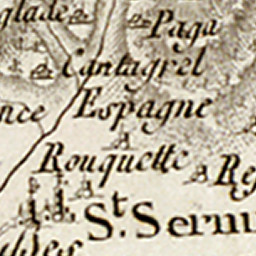 glade
Paga
Cantagrel
nce Espagne
Rouquette
St. Sernin